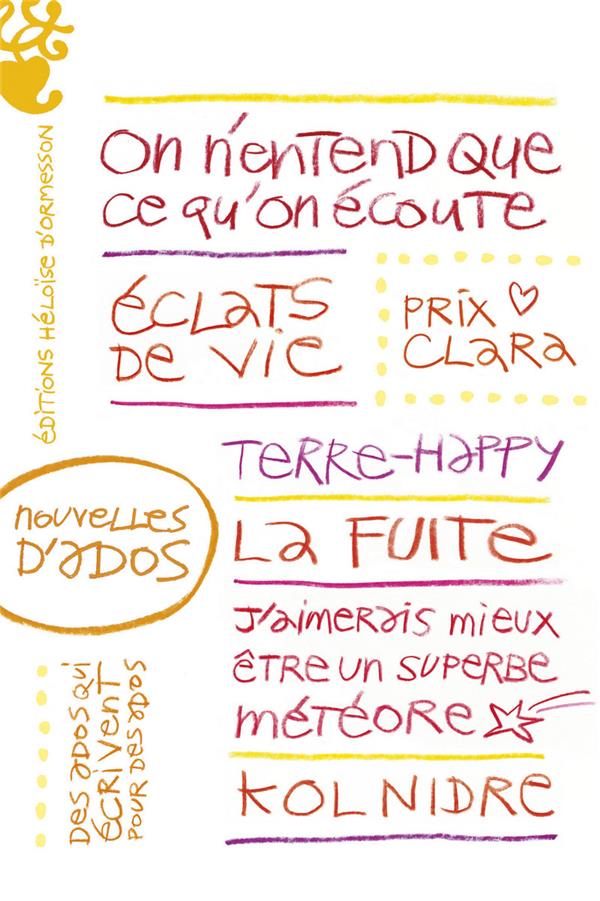 On n'entend que
ce qu'on écoute
éclats
de vie
PRIX
CLARA
TERRE-HAPPY
LA FUITE
J'aimerais mieux
être un superbe
météore
KOL NIDRE
nouvelles
D'ADOS
ÉDITIONS HÉLOÏSE D'ORMESSON
Des ados qui
écrivent
pour des ados